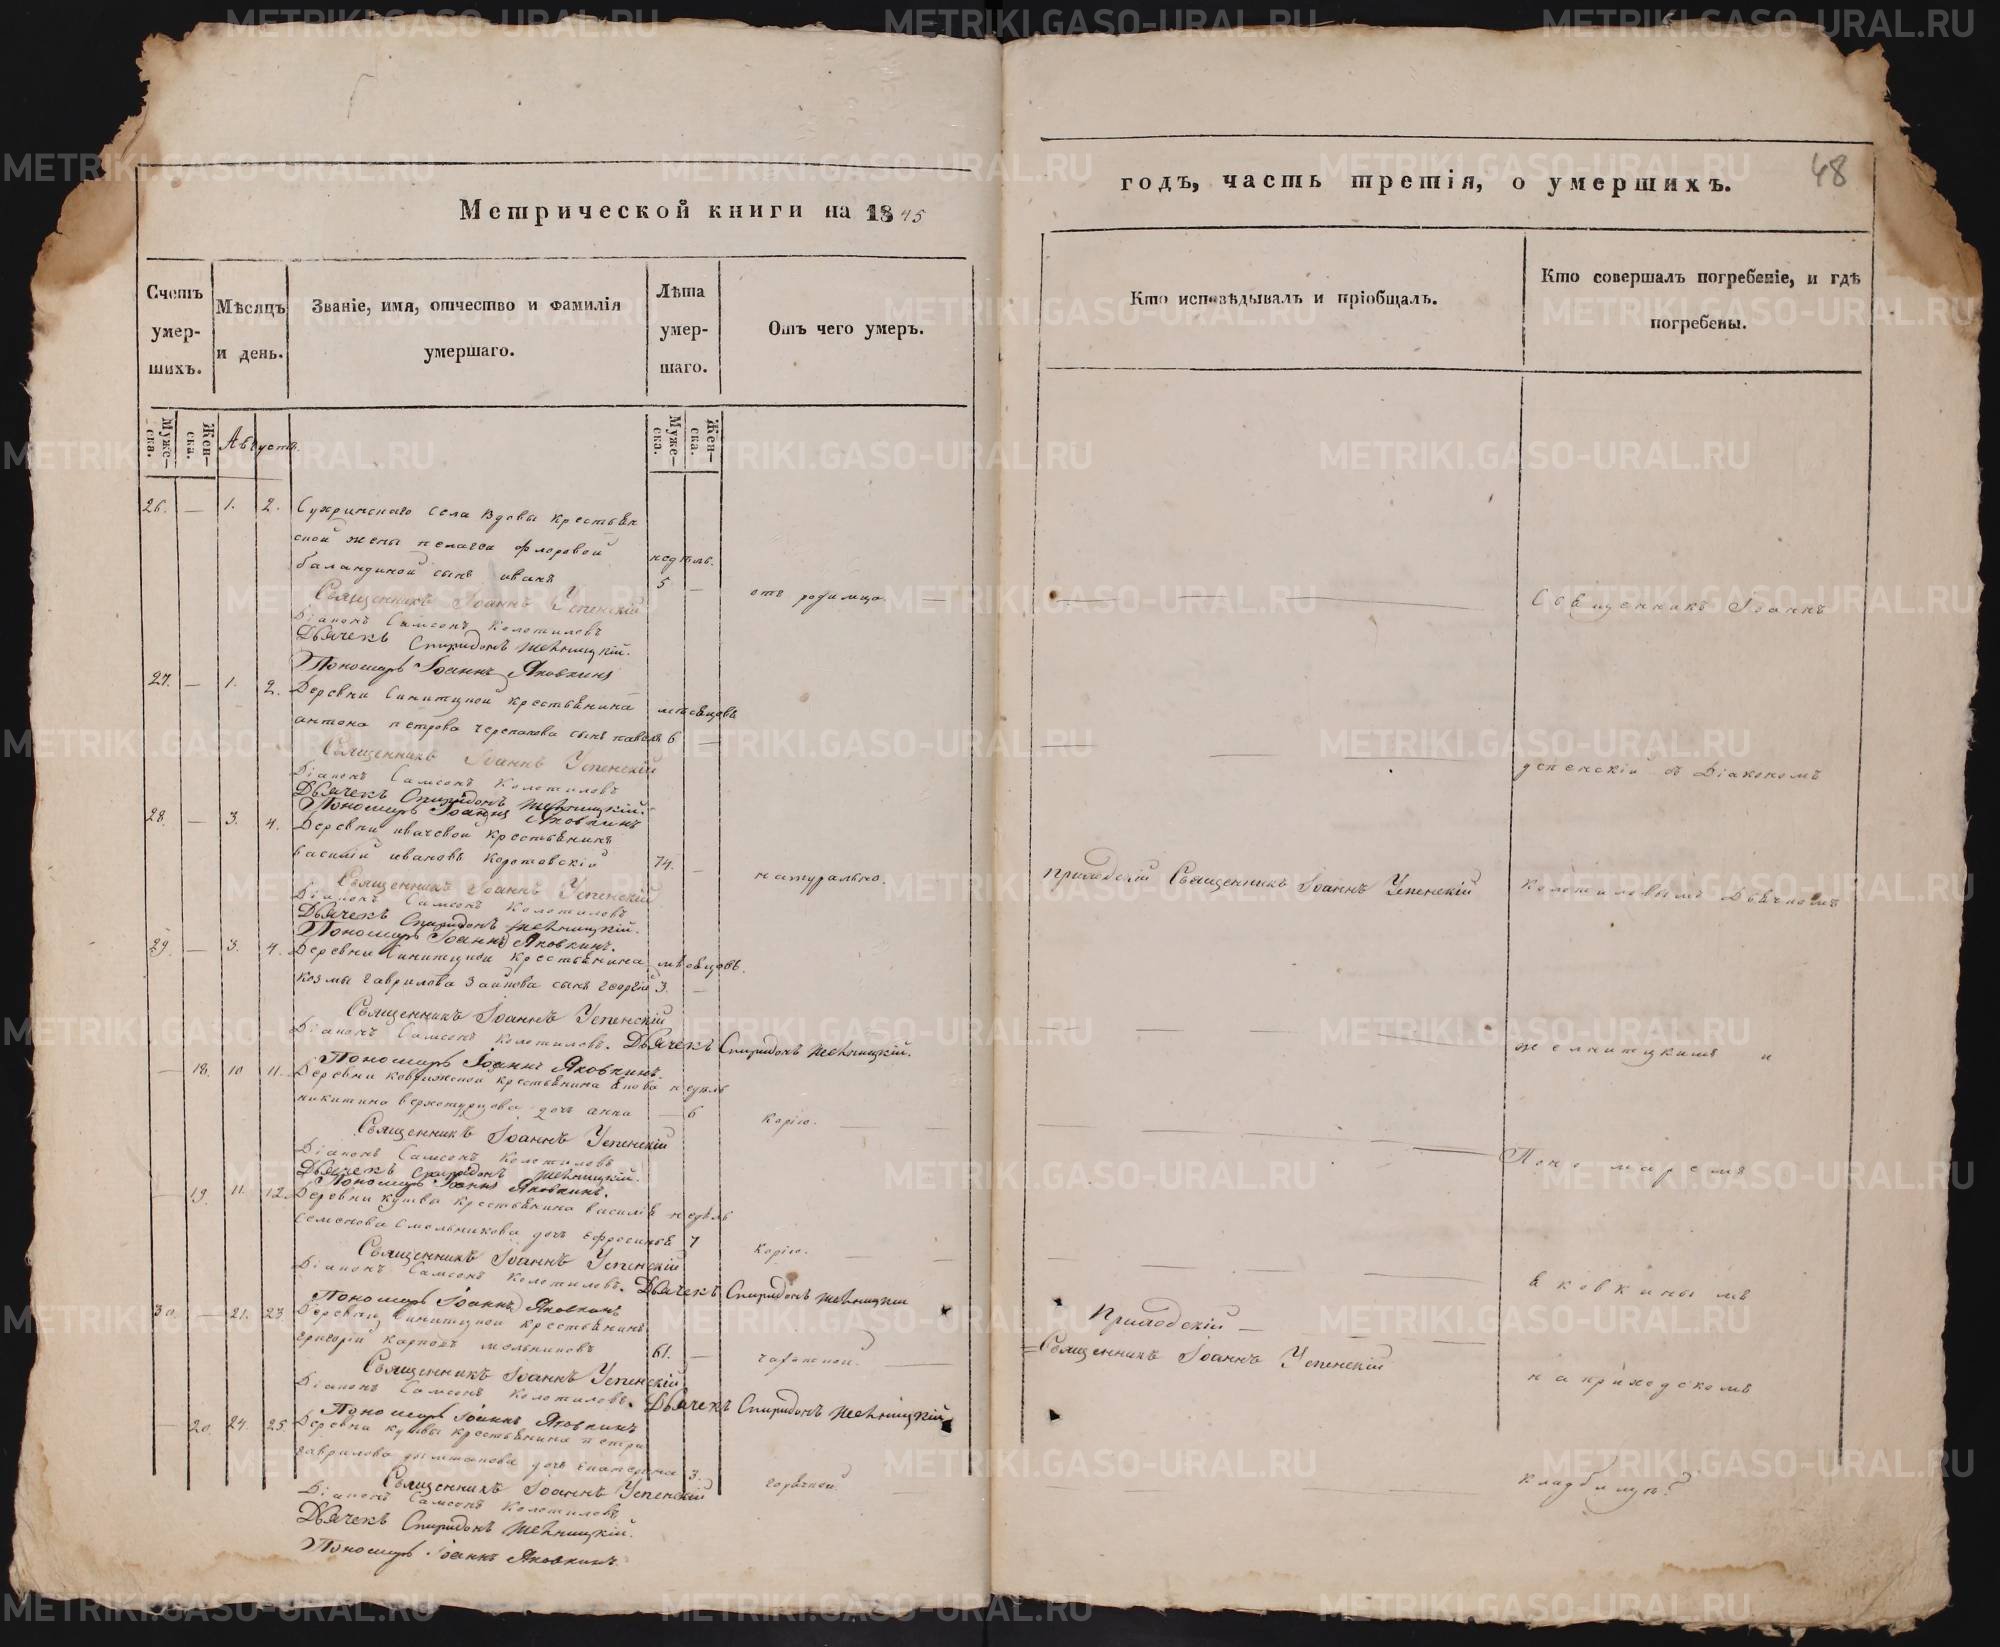 Метрической книги на 1845
годъ, часть третія, о умершихъ.
48
Счетъ умер-шихъ.
Мѣсяцъ и день.
Званіе, имя, отчество и фамилія умершаго.
Лѣта умер-шаго.
Отъ чего умеръ.
Кто исповѣдывалъ и пріобщалъ.
Кто совершалъ погребеніе, и гдѣ погребены.
Муже-ска.
Жен-ска.
Августъ.
Муже-ска.
Жен-ска.
26. — 1. 2. Сухринскаго села вдовы крестьян
ской жены пелагеи флоровой недѣль.
баландиной сынъ иванъ 5 — отъ родимца. — Священникъ Іоаннъ
Священникъ Іоаннъ Успенскій
Діаконъ Самсонъ Колотиловъ
Дьячекъ Спиридонъ Желницкій.
Пономарь Іоаннъ Яковкинъ
27. — 1. 2. Деревни Синитцной крестьянина мѣсецовъ
антона петрова черепанова сынъ павелъ 6 —
Священникъ Іоаннъ Успенскій
успенскій съ Діакономъ
Діаконъ Самсонъ Колотиловъ
Дьячекъ Спиридонъ Желницкій.
Пономарь Іоаннъ Яковкинъ
28. — 3. 4. Деревни ивачевой крестьянинъ
василій ивановъ Коротовскій 74. — натурально. приходскій Священникъ Іоаннъ Успенскій
колотиловымъ Дьячкомъ
Священникъ Іоаннъ Успенскій
Діаконъ Самсонъ Колотиловъ
Дьячекъ Спиридонъ Желницкій.
Пономарь Іоаннъ Яковкинъ.
29. — 3. 4. Деревни Синитцной крестьянина мѣсецовъ.
козмы гаврилова заипова сынъ георгій 3. —
Священникъ Іоаннъ Успенскій
Діаконъ Самсонъ Колотиловъ. Дьячекъ Спиридонъ Желницкій.
желнитцкимъ и
Пономарь Іоаннъ Яковкинъ.
— 18. 10 11. Деревни крестьянина недѣль
никитина верхотурцова дочь анна — 6 Корію.
Священникъ Іоаннъ Успенскій
Діаконъ Самсонъ Колотиловъ
Пономаремъ
Дьячекъ Спиридонъ Желницкій.
Пономарь Іоаннъ Яковкинъ.
— 19. 11. 12. Деревни кушва крестьянина василія недѣль
семенова смольникова дочь ефросинья 7 Корію.
Священникъ Іоаннъ Успенскій
Діаконъ Самсонъ Колотиловъ. Дьячекъ Спиридонъ Желницкій
Яковкинымъ
Пономарь Іоаннъ Яковкинъ
30. — 21. 23. Деревни Синитцной крестьянинъ Приходскій —
григорій карповъ мельниковъ 61. — чахоткой. Священникъ Іоаннъ Успенскій
Священникъ Іоаннъ Успенскій
на приходскомъ
Діаконъ Самсонъ Колотиловъ. Дьячекъ Спиридонъ Желницкій
Пономарь Іоаннъ Яковкинъ
— 20. 24. 25. Деревни кушвы крестьянина петра
гаврилова дочь екатерина 3. горячкой.
кладбищѣ
Священникъ Іоаннъ Успенскій
Діаконъ Самсонъ Колотиловъ
Дьячекъ Спиридонъ Желницкій.
Пономарь Іоаннъ Яковкинъ.
METRIKI.GASO-URAL.RU